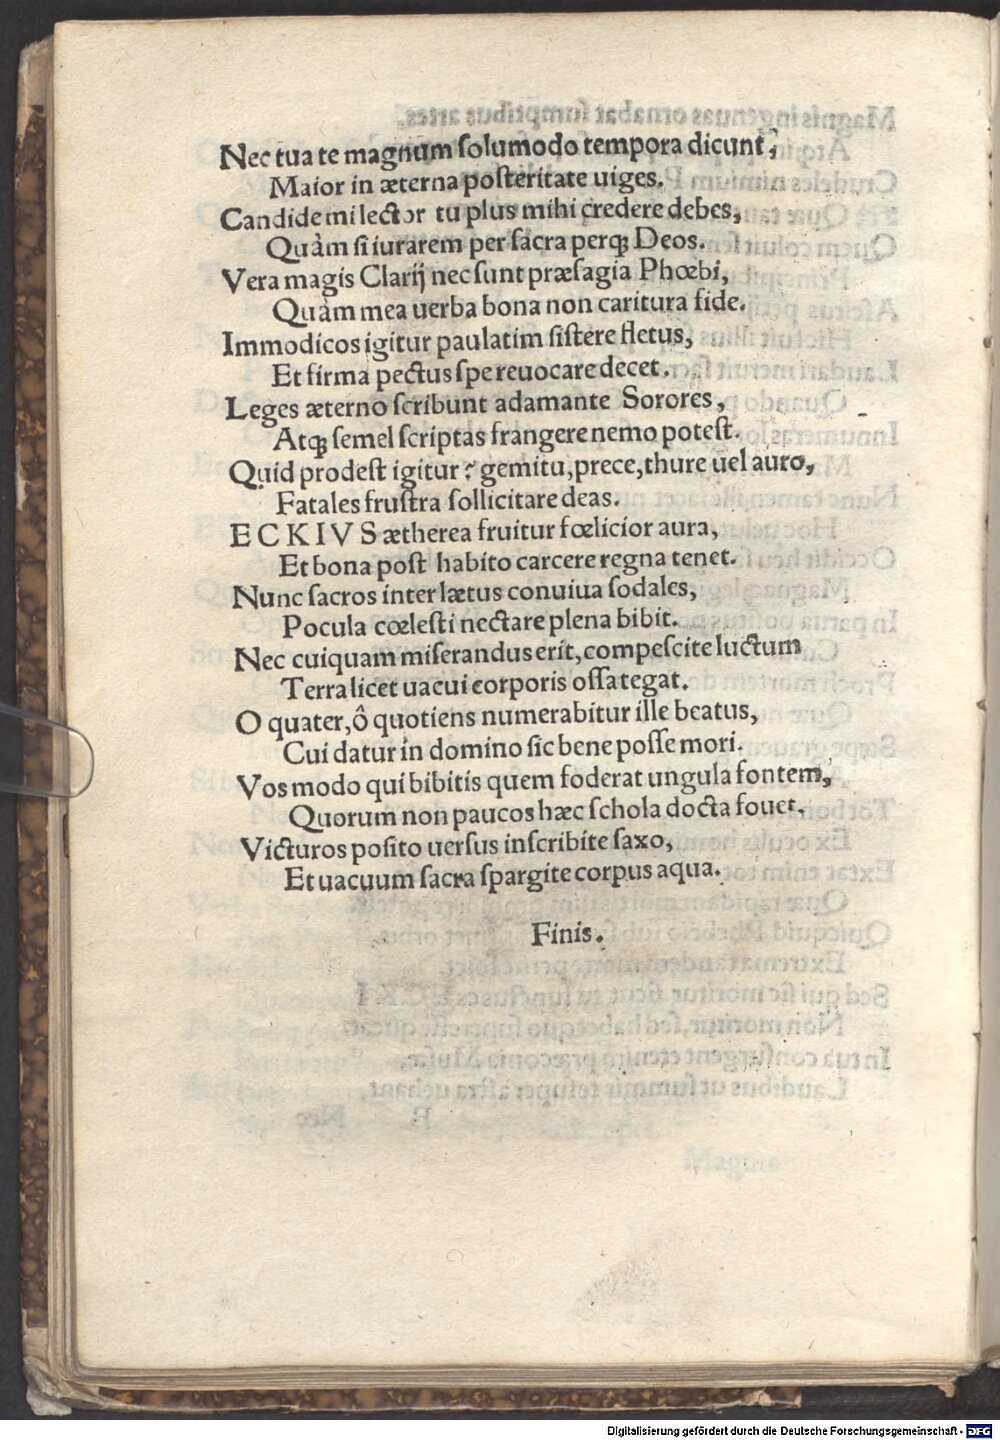 Nec tua te magnum solumodo tempora dicunt,
Maior in æterna posteritate uiges.
Candide mi lector tu plus mihi credere debes,
Quàm si iurarem per sacra perq; Deos.
Vera magis Clarij nec sunt præsagia Phœbi,
Quàm mea uerba bona non caritura fide.
Immodicos igitur paulatim sistere fletus,
Et firma pectus spe reuocare decet.
Leges æterno scribunt adamante Sorores,
Atq; semel scriptas frangere nemo potest.
Quid prodest igitur? gemitu, prece, thure uel auro,
Fatales frustra sollicitare deas.
ECKIVS ætherea fruitur fœlicior aura,
Et bona post habito carcere regna tenet.
Nunc sacros inter lætus conuiua sodales,
Pocula cœlesti nectare plena bibit.
Nec cuiquam miserandus erit, compescite luctum
Terra licet uacui corporis ossa tegat.
O quater, ô quotiens numerabitur ille beatus,
Cui datur in domino sic bene posse mori.
Vos modo qui bibitis quem foderat ungula fontem,
Quorum non paucos hæc schola docta fouet.
Victuros posito uersus inscribite saxo,
Et uacuum sacra spargite corpus aqua.
Finis.
Digitalisierung gefördert durch die Deutsche Forschungsgemeinschaft - DFG